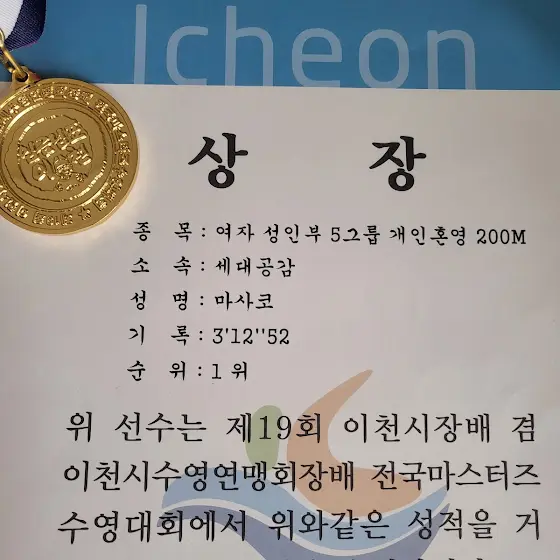 Icheon
상 장
종 목 : 여자 성인부 5그룹 개인혼영 200M
소 속 : 세대공감
성 명 : 마사코
기 록 : 3'12''52
순 위 : 1 위
위 선수는 제19회 이천시장배 겸
이천시수영연맹회장배 전국마스터즈
수영대회에서 위와같은 성적을 거